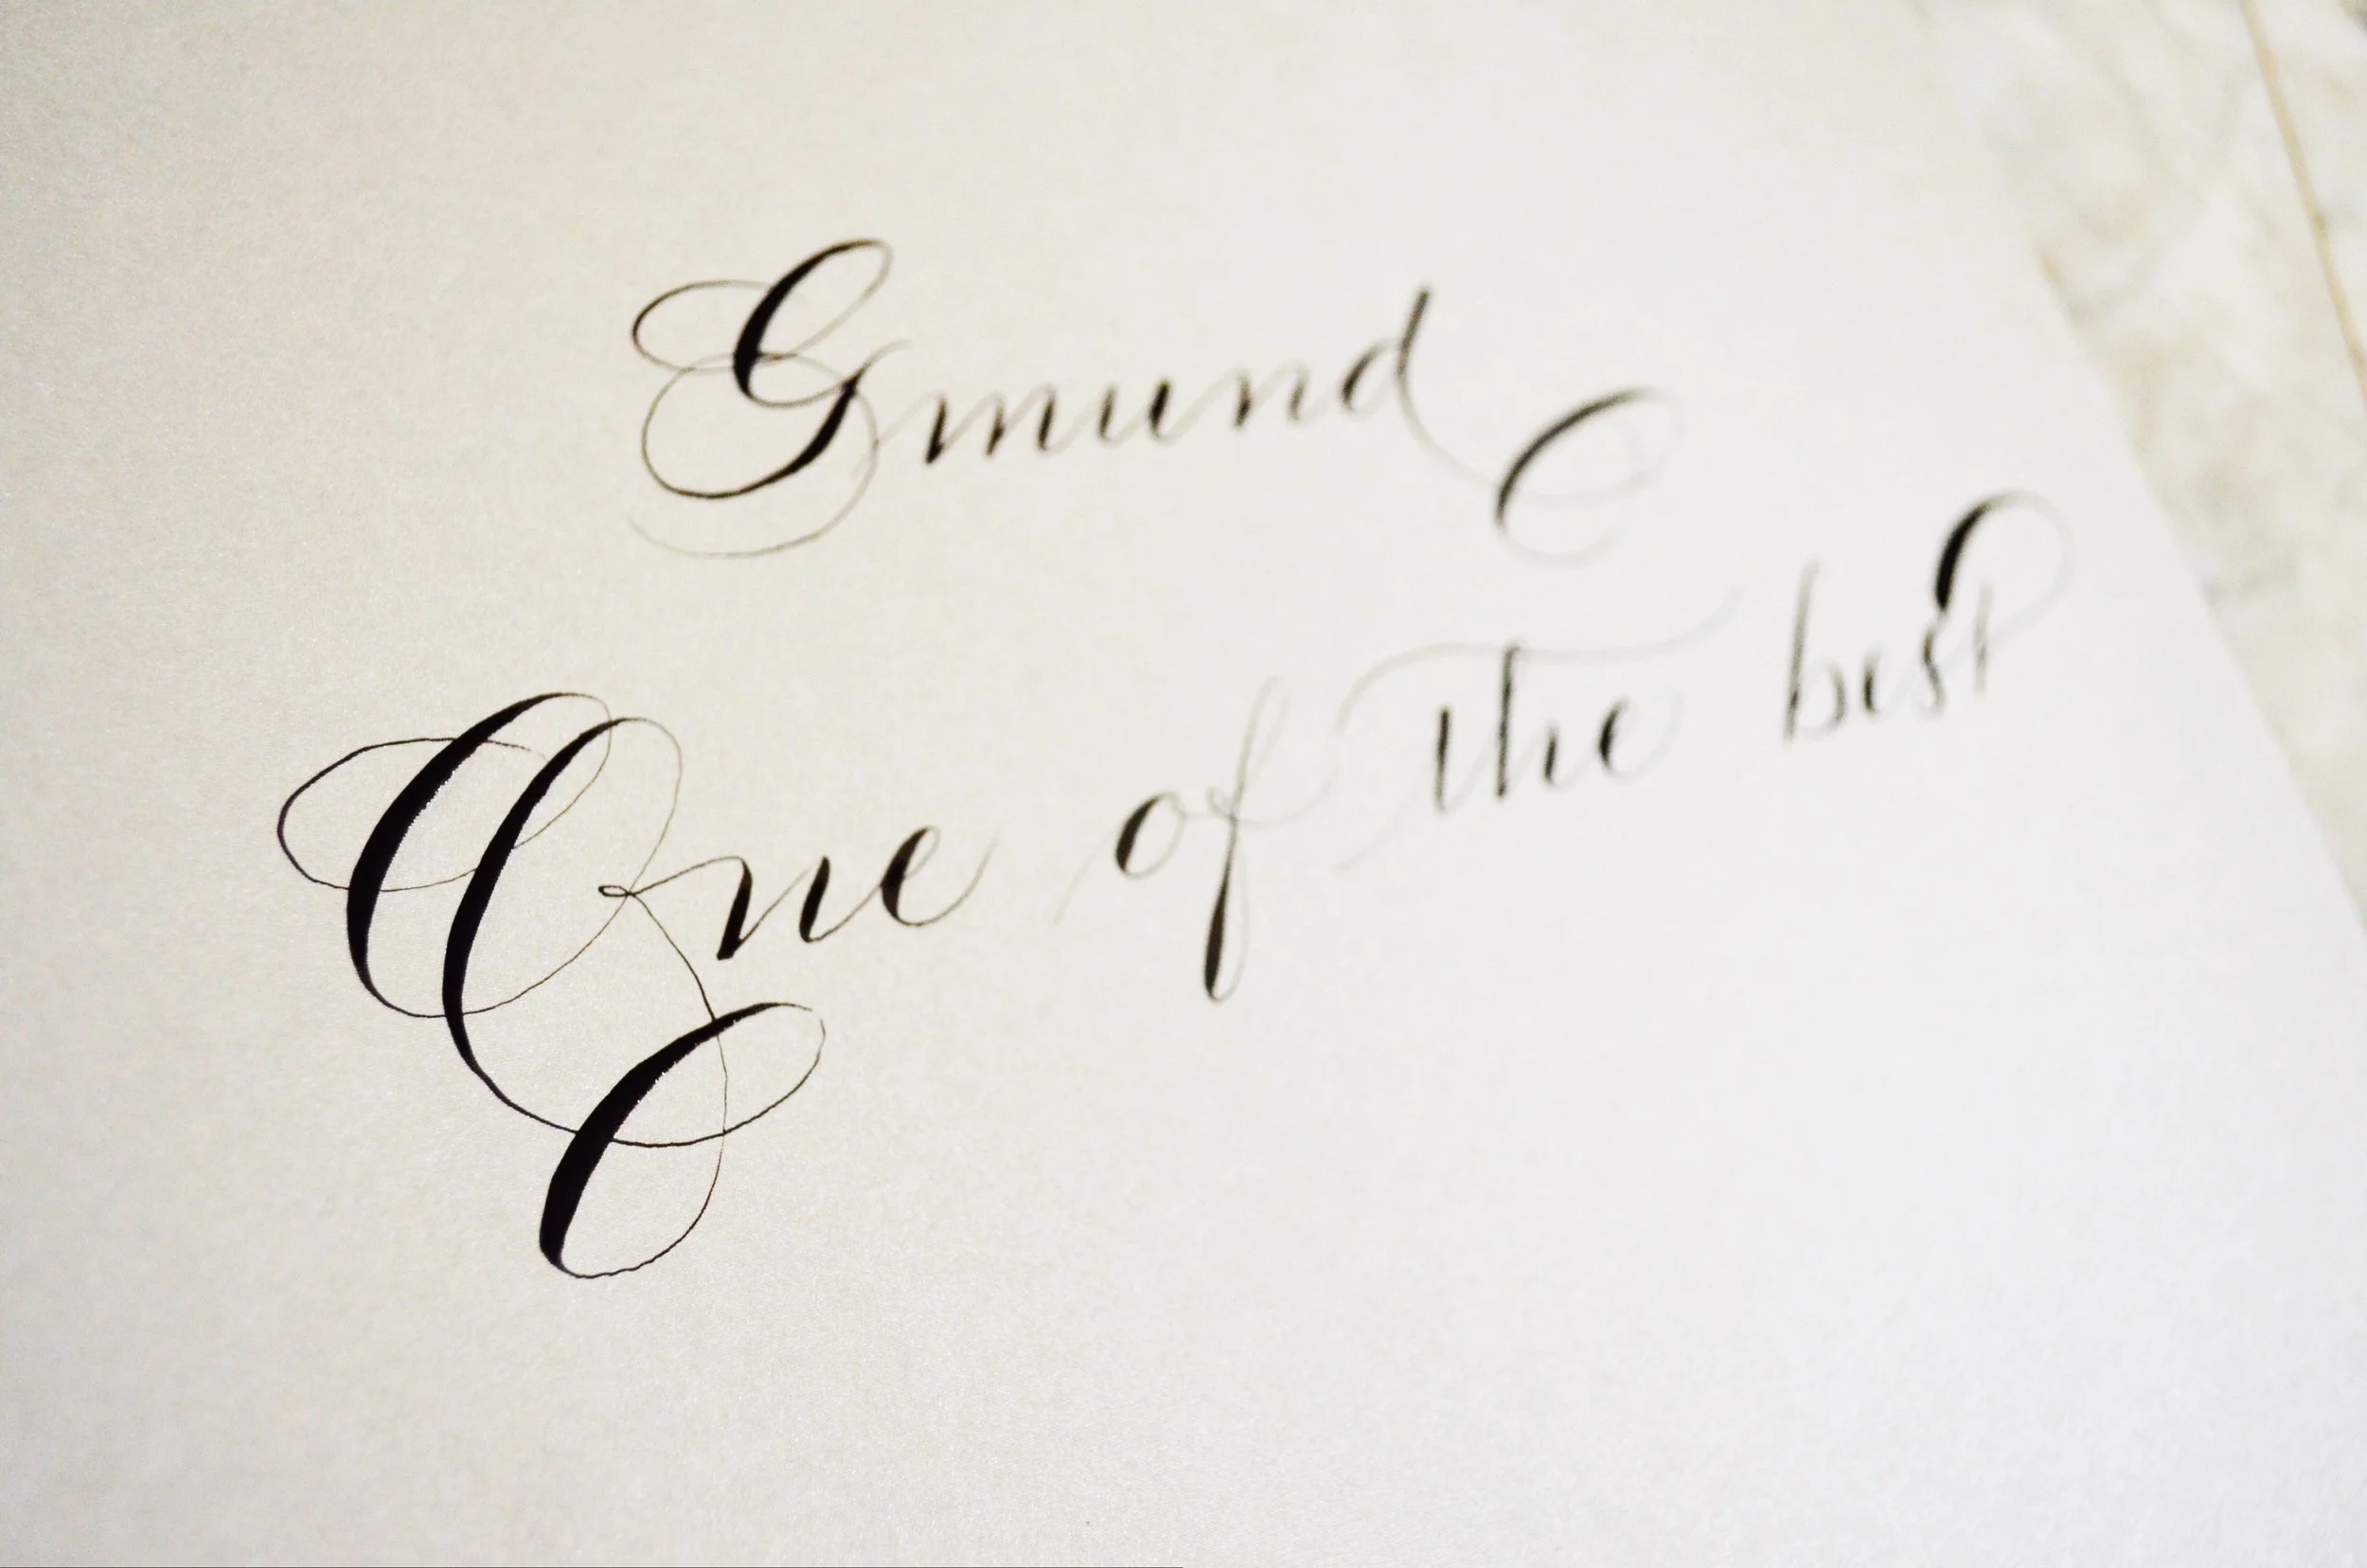 Gmund
One of the best